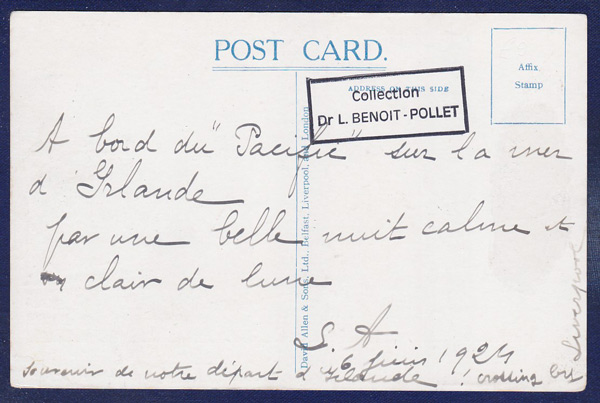 POST CARD.
Affix
Stamp
ADDRESS ON THIS SIDE
Collection
Dr L. BENOIT - POLLET
A bord du "Pacific" sur la mer
d'Irlande
par une belle nuit calme et
clair de lune
David Allen & Sons, Ltd., Belfast, Liverpool, and London
S. A
6 juin 1924
souvenir de notre départ d'Irlande ! crossing by
Liverpool